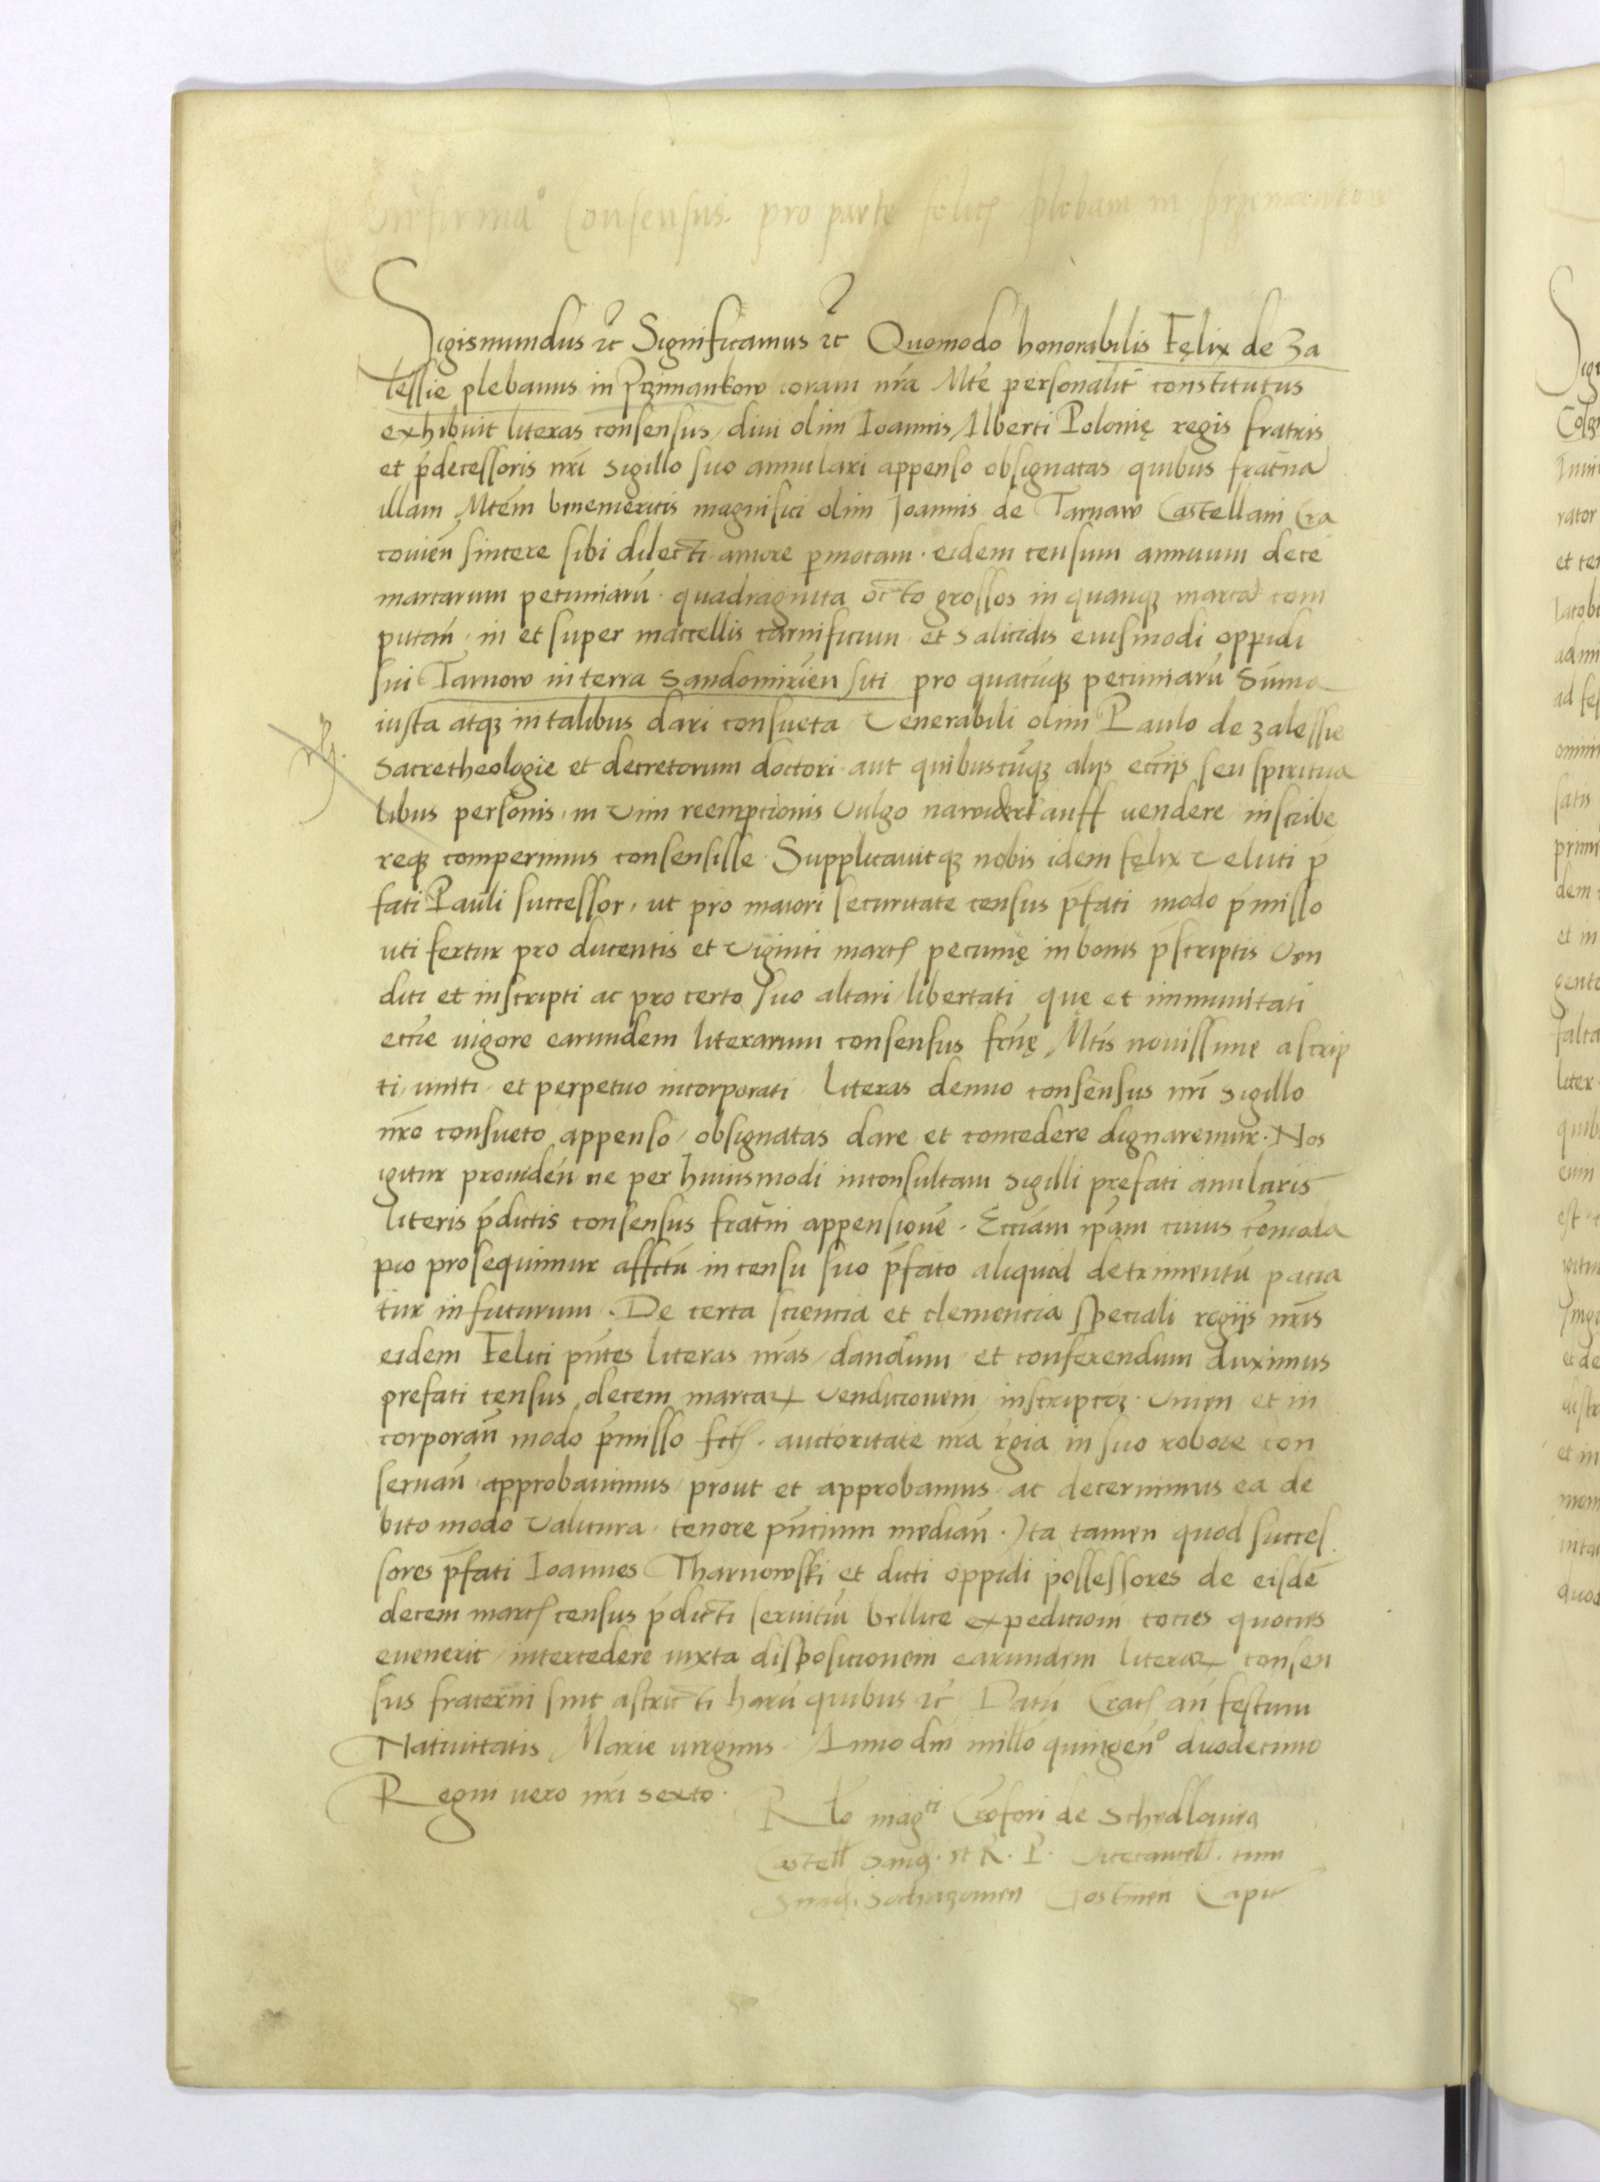 Confirma° Consensus pro parte felic[is] plebani in
Sigismundus ꝛc Significamus ꝛc Quomodo honorabilis Fęlix de Za
lessie plebanus in Przimankow coram nr̄a Mte personalit̄ constitutus
exhibuit literas consensus diui olim Ioannis Alberti Polonię regis fratris
et p̄decessoris nr̄i sigillo suo annulari appenso obsignatas quibus frat̄na
illam Mtem̄ benemeritis magnifici olim Joannis de Tarnaw Castellani Cra
couien̄ sincere sibi dilecti amore p̱motam · eidem censum annuum decē
marcarum pecuniarū · quadraginta octo grossos in quamq̨ marcā com
putan̄ · in et super maccellis carnificum et salicidis eiusmodi oppidi
sui Tarnow in terra Sandomirien̄ siti pro quacūq̨ pecuniarū Sūma
iusta atq̨ in talibus dari consueta Venerabili olim Paulo de zalessie
Sacretheologie et decretorum doctori aut quibuscūq̨ alijs eccl̄ijs seu spiritua
libus personis in Vim reempcionis Vulgo nawiderkauff uendere inscribe
req̨ comperimus consensisse · Supplicauitq̨ nobis idem fęlix Veluti p̄
fati Pauli successor, ut pro maiori securitate census p̄fati modo p̄misso
uti fertur pro ducentis et Viginti marcꝭ pecunię in bonis p̄scriptis Ven
diti et inscripti ac pro certo suo altari libertati quę et immunitati
eccl̄ie uigore earundem literarum consensus fr̄nę Mtis nouissime ascrip
ti, uniti, et perpetuo incorporati literas denuo consensus nr̄i sigillo
nr̄o consueto appenso, obsignatas dare et concedere dignaremur · Nos
igitur prouiden̄ ne per huiusmodi inconsultam sigilli prefati anularis
literis p̄dictis consensus frat̄ni appensionē · Eccl̄iam ip̄am cuius cōmoda
pio prosequimur affectū in censu suo p̄fato aliquid detrimentū pacia
tur in futurum · De certa sciencia et clemencia speciali regijs nr̄is
eidem Felici pn̄tes literas nr̄as dandum et conferendum duximus
prefati census decem marcaꝝ Vendicionem inscripcōꝫ · Vnien̄ et in
corporan̄ modo p̄misso fctꝭ · auctoritate nr̄a r̄gia in suo robore con
seruan̄ approbauimus prout et approbamus ac decernimus ea de
bito modo Valitura tenore pn̄cium median̄ · Ita tamen quod succes
sores p̄fati Ioannes Tharnowski et dicti oppidi possessores de eisdē
decem marcꝭ census p̄dicti seruitiū bellice expedicioni tocies quocies
euenerit, intercedere iuxta disposicionem earundem literaꝝ consen
sus fraterni sint astricti harū quibus ꝛc Datū Cracꝭ an̄ festum
Natiuitatis Marie uirginis Anno dn̄i millo quingen° duodecimo
Regni vero nr̄i sexto ·
Rlo mag^ci Cr̄ofori de Schidlouiea
Castell Sand. et R. P. Vicecancell. cum
Sochazouien Gostinen Capit